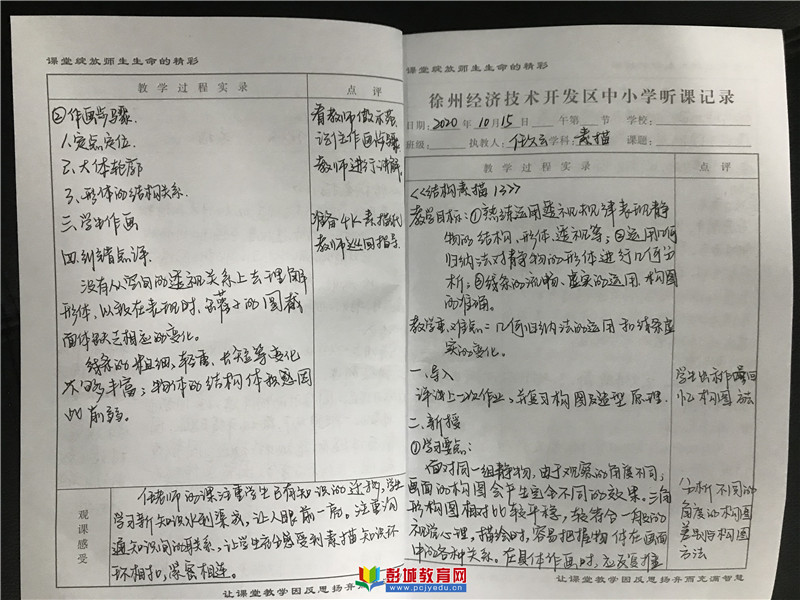 课堂绽放师生生命的精彩
教学过程实录
点评
②作画步骤.
1.定点定位.
2.大体轮廓
3.形体的结构关系.
三.学生作画
四.纠错点评.
没有从空间的透视关系上去理解
形体,以致在表现时,
面体缺乏相应的变化.
线条的粗细,轻重、长短等变化
不够丰富;物体的结构体积感因
此削弱。
看教师做示范
记住作画步骤
教师进行讲解
准备4K素描纸
教师巡回指导
观课感受
任老师的课注重学生已有知识的迁移,学生
学习新知识水到渠成,让人眼前一亮.注重沟
通知识间的联系,让学生充分感受到素描知识环
环相扣,紧密相连。
让课堂教学因反思扬弃
课堂绽放师生生命的精彩
徐州经济技术开发区中小学听课记录
日期:2020年10月15日 午第 节 学校:
班级: 执教人:任 学科:素描 课题:
教学过程实录
点评
《结构素描13》
教学目标:①熟练运用透视规律表现静
物的结构、形体、透视等;②运用几何
归纳法对静物的形体进行几何分
析;③线条的流畅、虚实的运用、构图
的准确。
教学重、难点:几何归纳法的运用和线条虚
实的变化。
一.导入
评讲上一次作业,并复习构图及造型原理.
二.新授
①学习要点:
面对同一组静物,由于观察的角度不同,
画面的构图会产生迥然不同的效果。三角
形构图相对比较平稳,较符合一般的
视觉心理,描绘时,容易把握物体在画面
中的各种关系。在具体作画时,应反复推
学生出示作
忆构图方法
分析不同的
角度的构图
差别与构图
方法
让课堂教学因反思扬弃而充满智慧
彭城教育网
www.pcjyedu.com